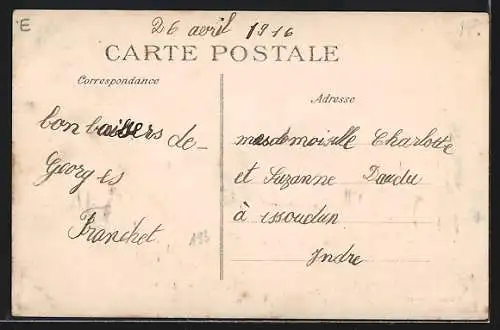 E
26 avril 1916
CARTE POSTALE
Correspondance
Adresse
bon baisers de
Georges
Franchet
mesdemoiselle Charlotte
et Suzanne Daudu
à issoudun
Indre